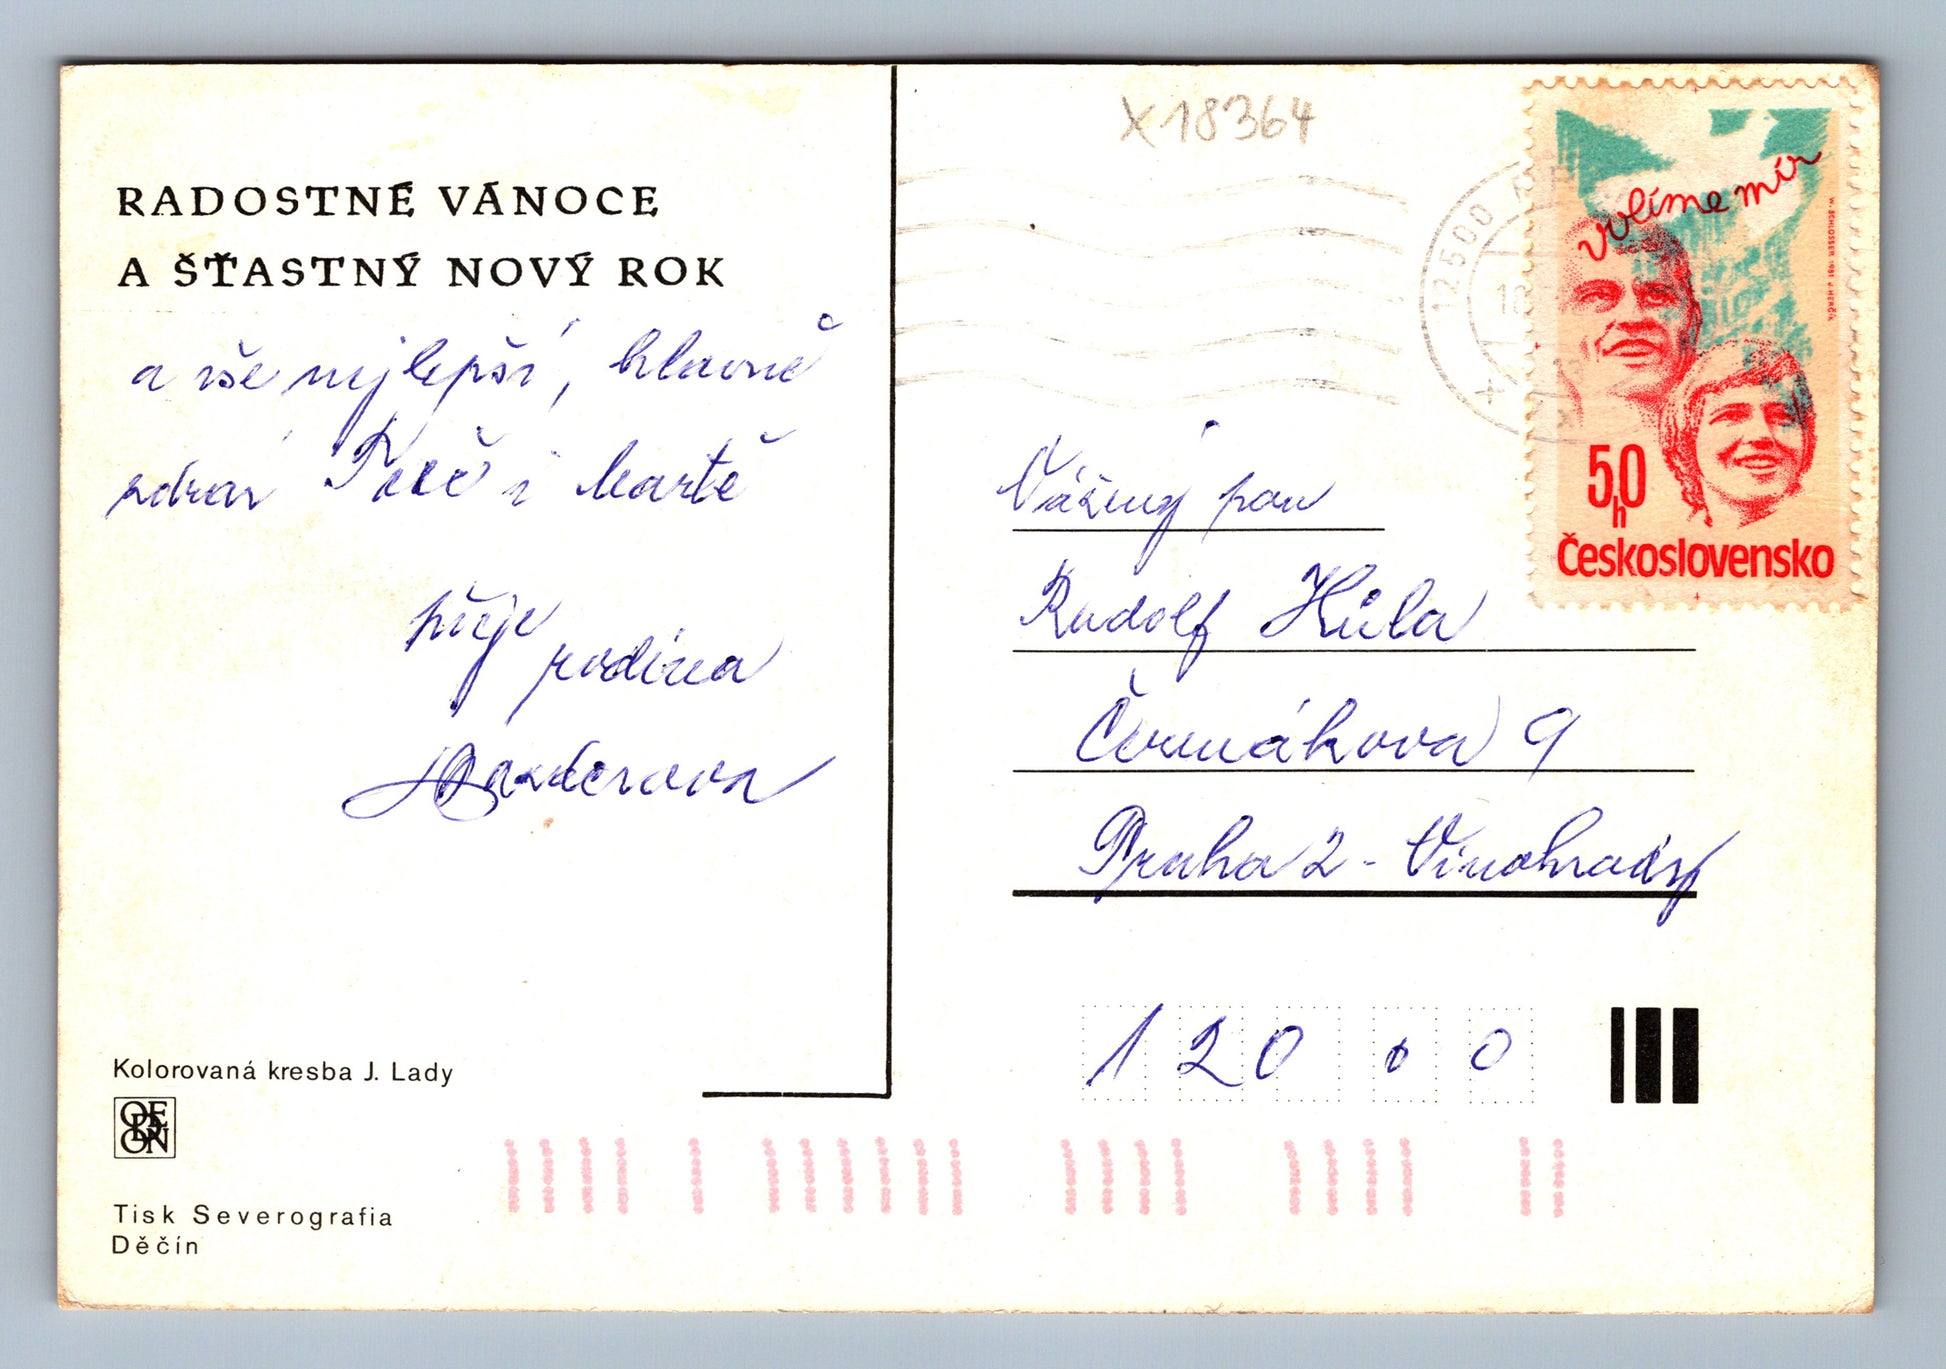 RADOSTNÉ VÁNOCE
A ŠŤASTNÝ NOVÝ ROK
a vše nejlepší, hlavně
zdraví Tobě i Martě
přeje
rodina
Kolorovaná kresba J. Lady
ODEON
Tisk Severografia
Děčín
X 18364
12500
volíme mír
W. SCHLOSSER 1981 J. HERČÍK
50h
Československo
Vážený pan
Rudolf Hůla
Čermákova 9
Praha 2 - Vinohrady
120 00